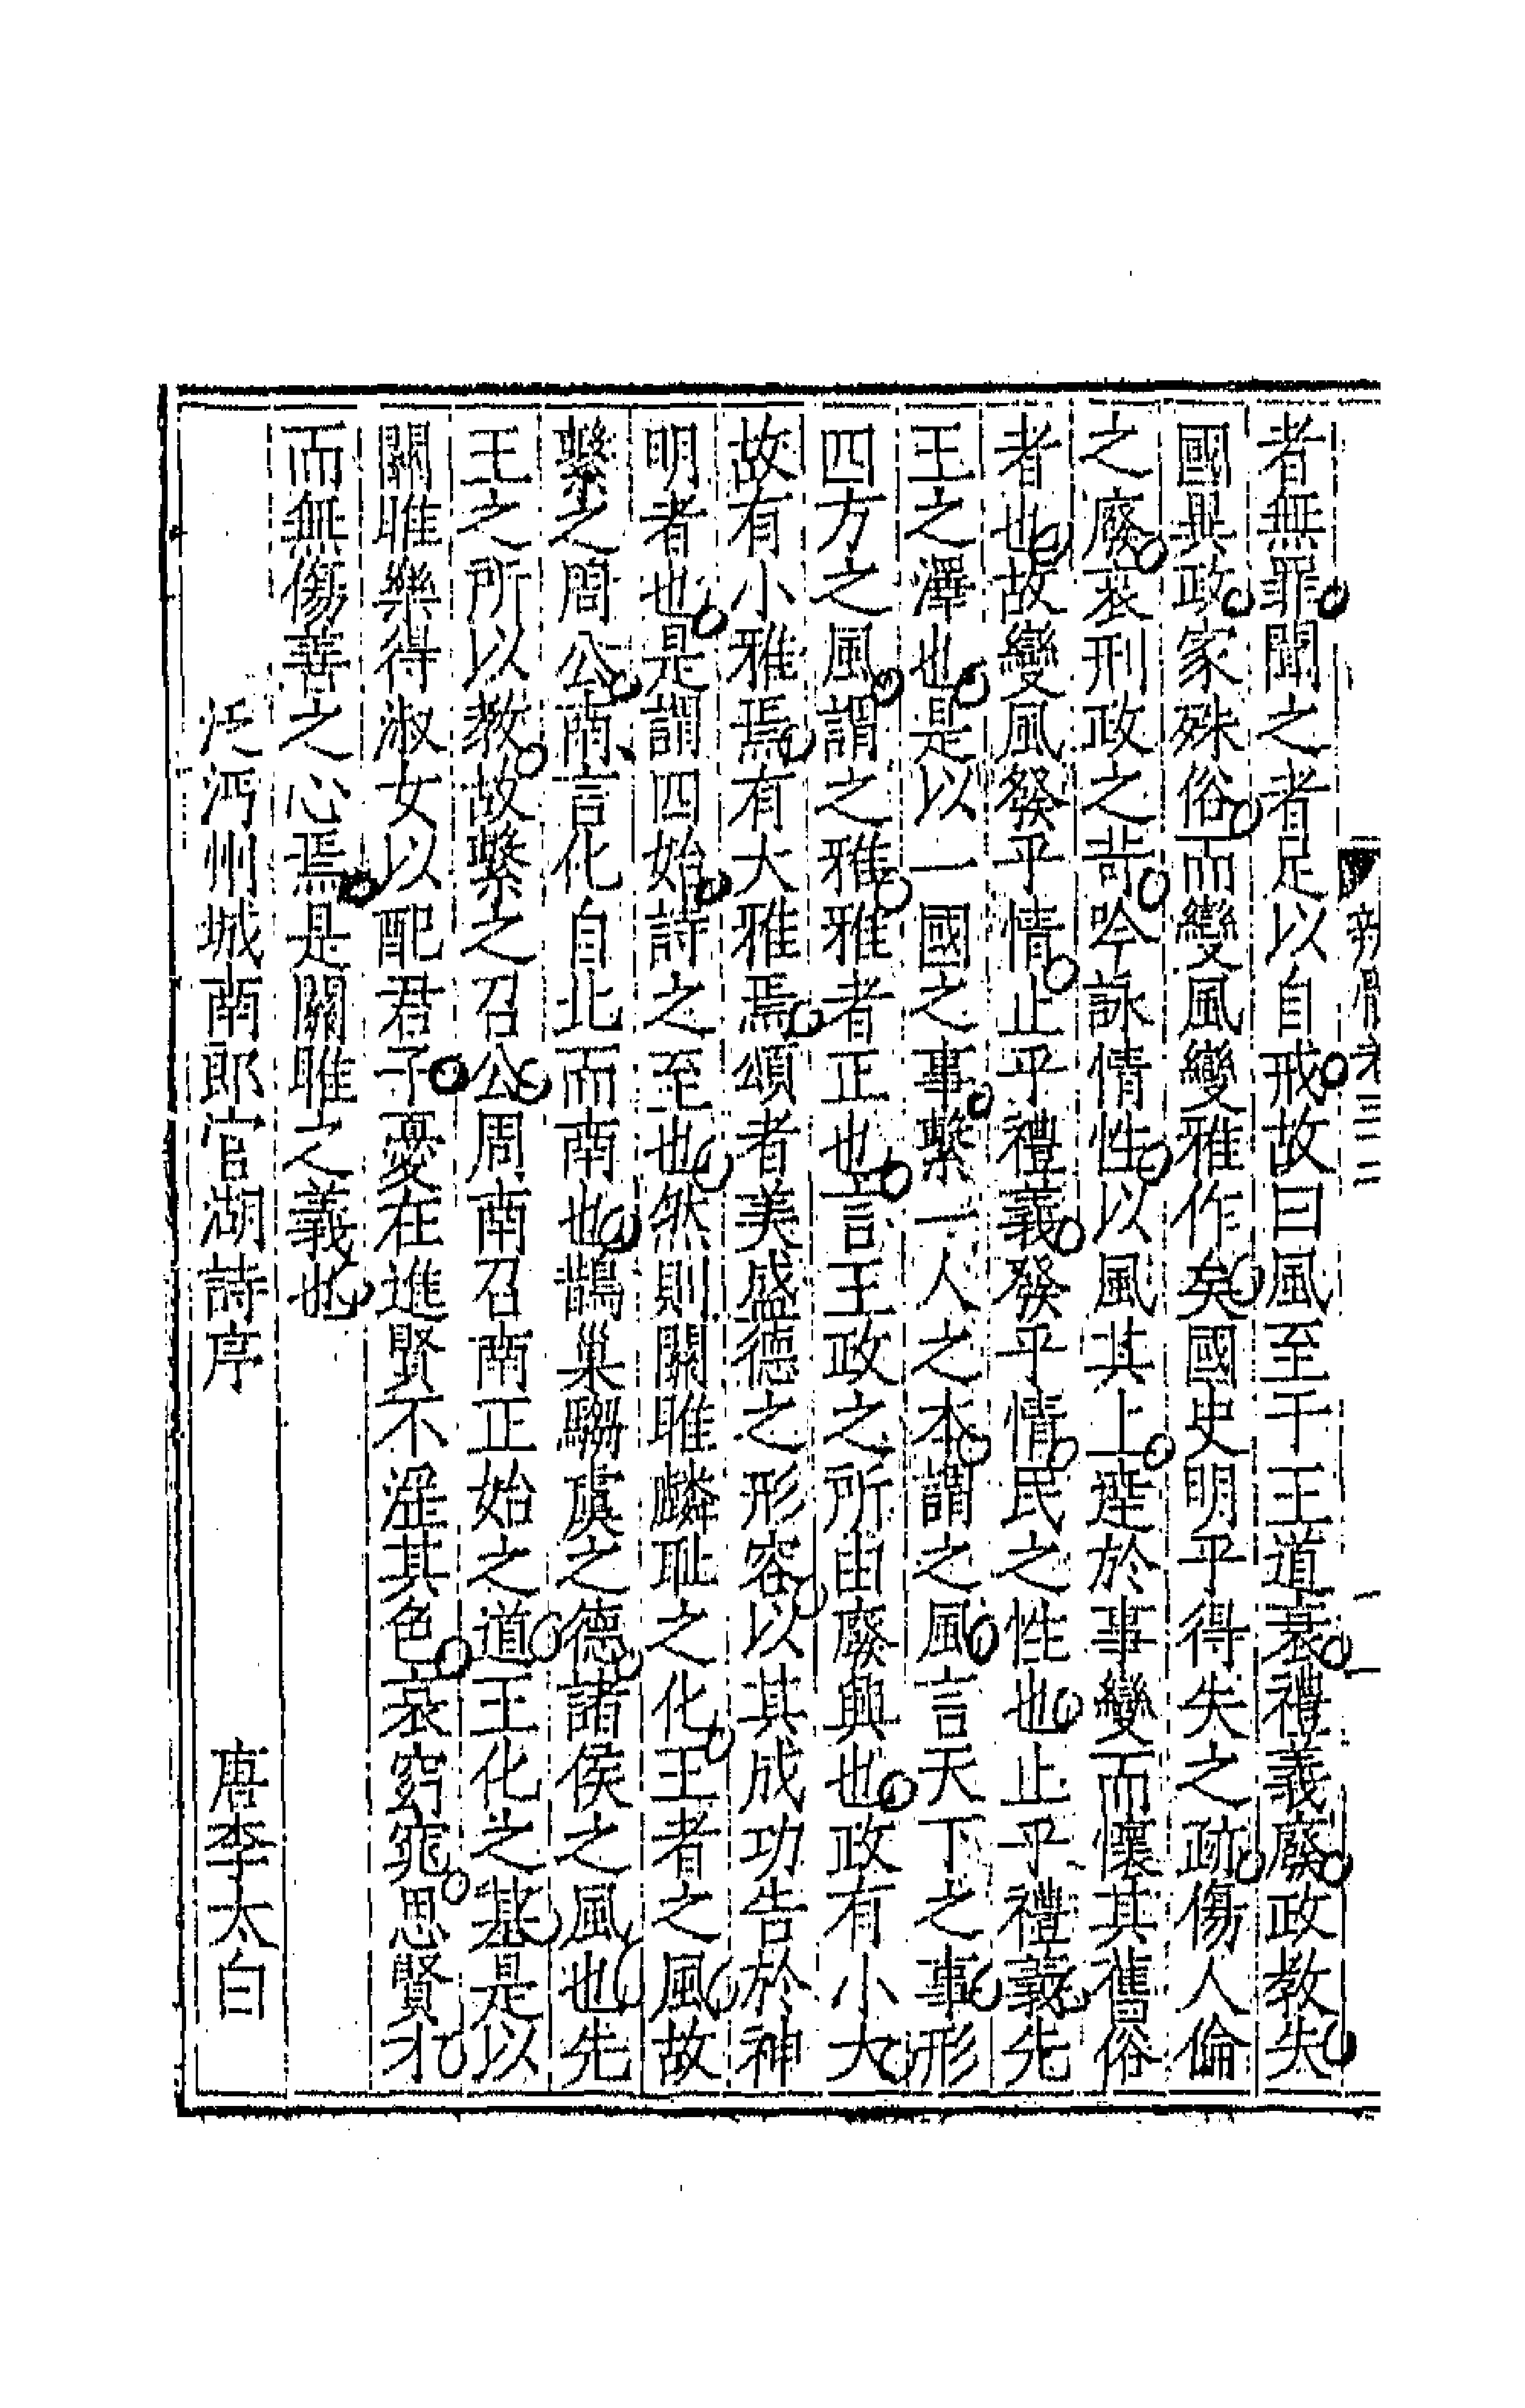 者無罪聞之者足以自戒故曰風至于王道衰禮義廢政教失
國異政家殊俗而變風變雅作矣國史明乎得失之疏傷人倫
之廢哀刑政之苛吟詠情性以風其上達於事變而懷其舊俗
者也故變風發乎情止乎禮義發乎情民之性也止乎禮義先
王之澤也是以一國之事繫一人之本謂之風言天下之事形
四方之風謂之雅雅者正也言王政之所由廢興也政有小大
故有小雅焉有大雅焉頌者美盛德之形容以其成功告於神
明者也是謂四始詩之至也然則關雎麟趾之化王者之風故
繫之周公南言化自北而南也鵲巢騶虞之德諸侯之風也先
王之所以教故繫之召公周南召南正始之道王化之基是以
關雎樂得淑女以配君子憂在進賢不淫其色哀窈窕思賢才
而無傷善之心焉是關雎之義也
泛沔州城南郎官湖詩序 唐李太白